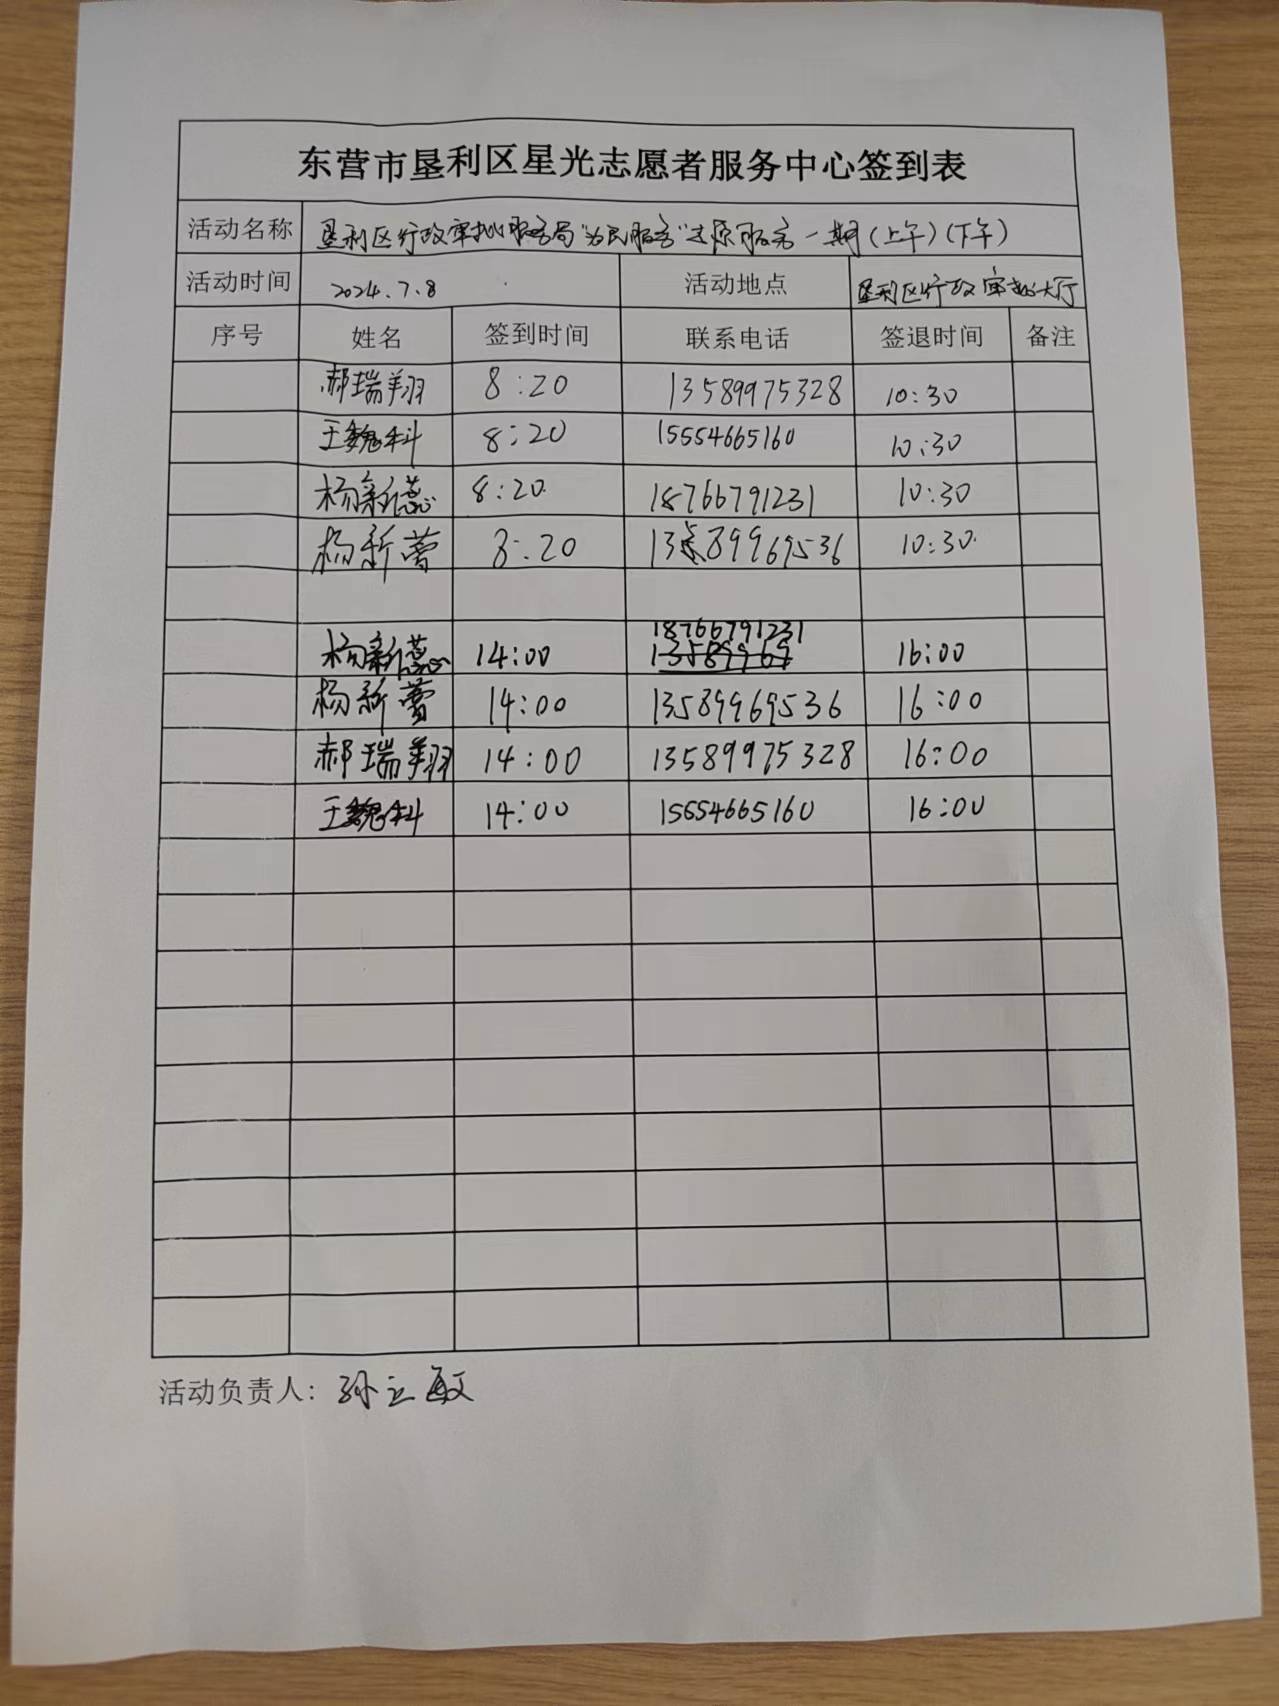 东营市垦利区星光志愿者服务中心签到表
活动名称 垦利区行政审批服务局“为民服务”志愿服务一期(上午)(下午)
活动时间 2024.7.8 活动地点 垦利区行政审批大厅
序号 姓名 签到时间 联系电话 签退时间 备注
郝瑞翔 8:20 13589975328 10:30
王魏科 8:20 15554665160 10:30
杨新蕊 8:20 18766791231 10:30
杨新蕾 8:20 13589969536 10:30
18766791231
杨新蕊 14:00 13589969 16:00
杨新蕾 14:00 13589969536 16:00
郝瑞翔 14:00 13589975328 16:00
王魏科 14:00 15554665160 16:00
活动负责人：孙立敏